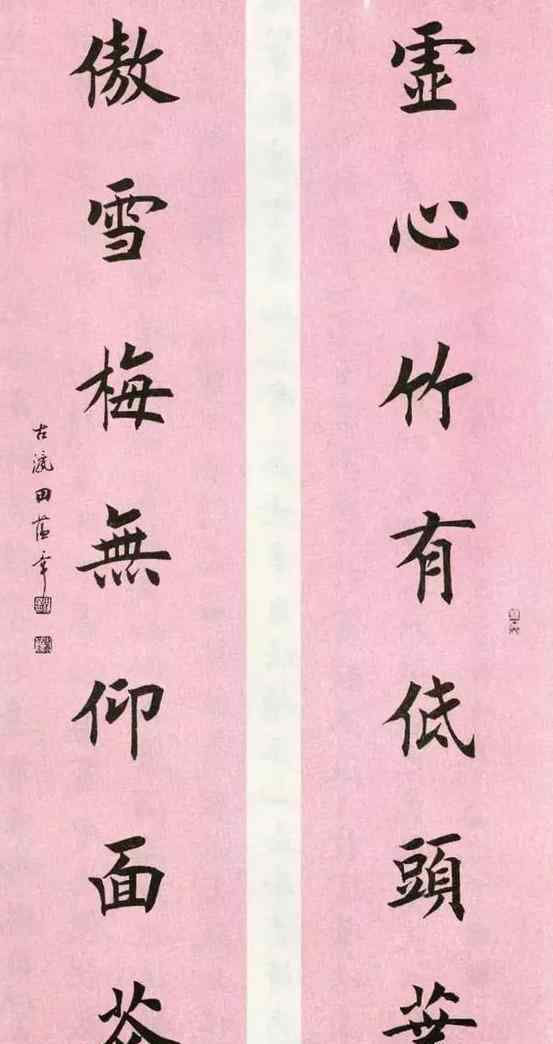 虛心竹有低頭葉
傲雪梅無仰面
古田蘊章